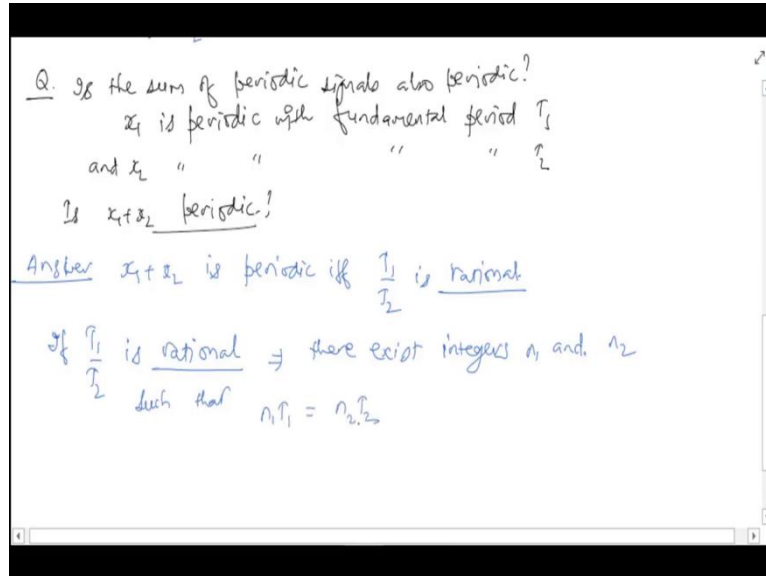 Q. Is the sum of periodic signals also periodic?
x₁ is periodic with fundamental period T₁
and x₂ " " " " T₂
Is x₁+x₂ periodic?
Answer x₁+x₂ is periodic iff T₁/T₂ is rational
If T₁/T₂ is rational ⇒ there exist integers n₁ and n₂
such that n₁T₁ = n₂T₂